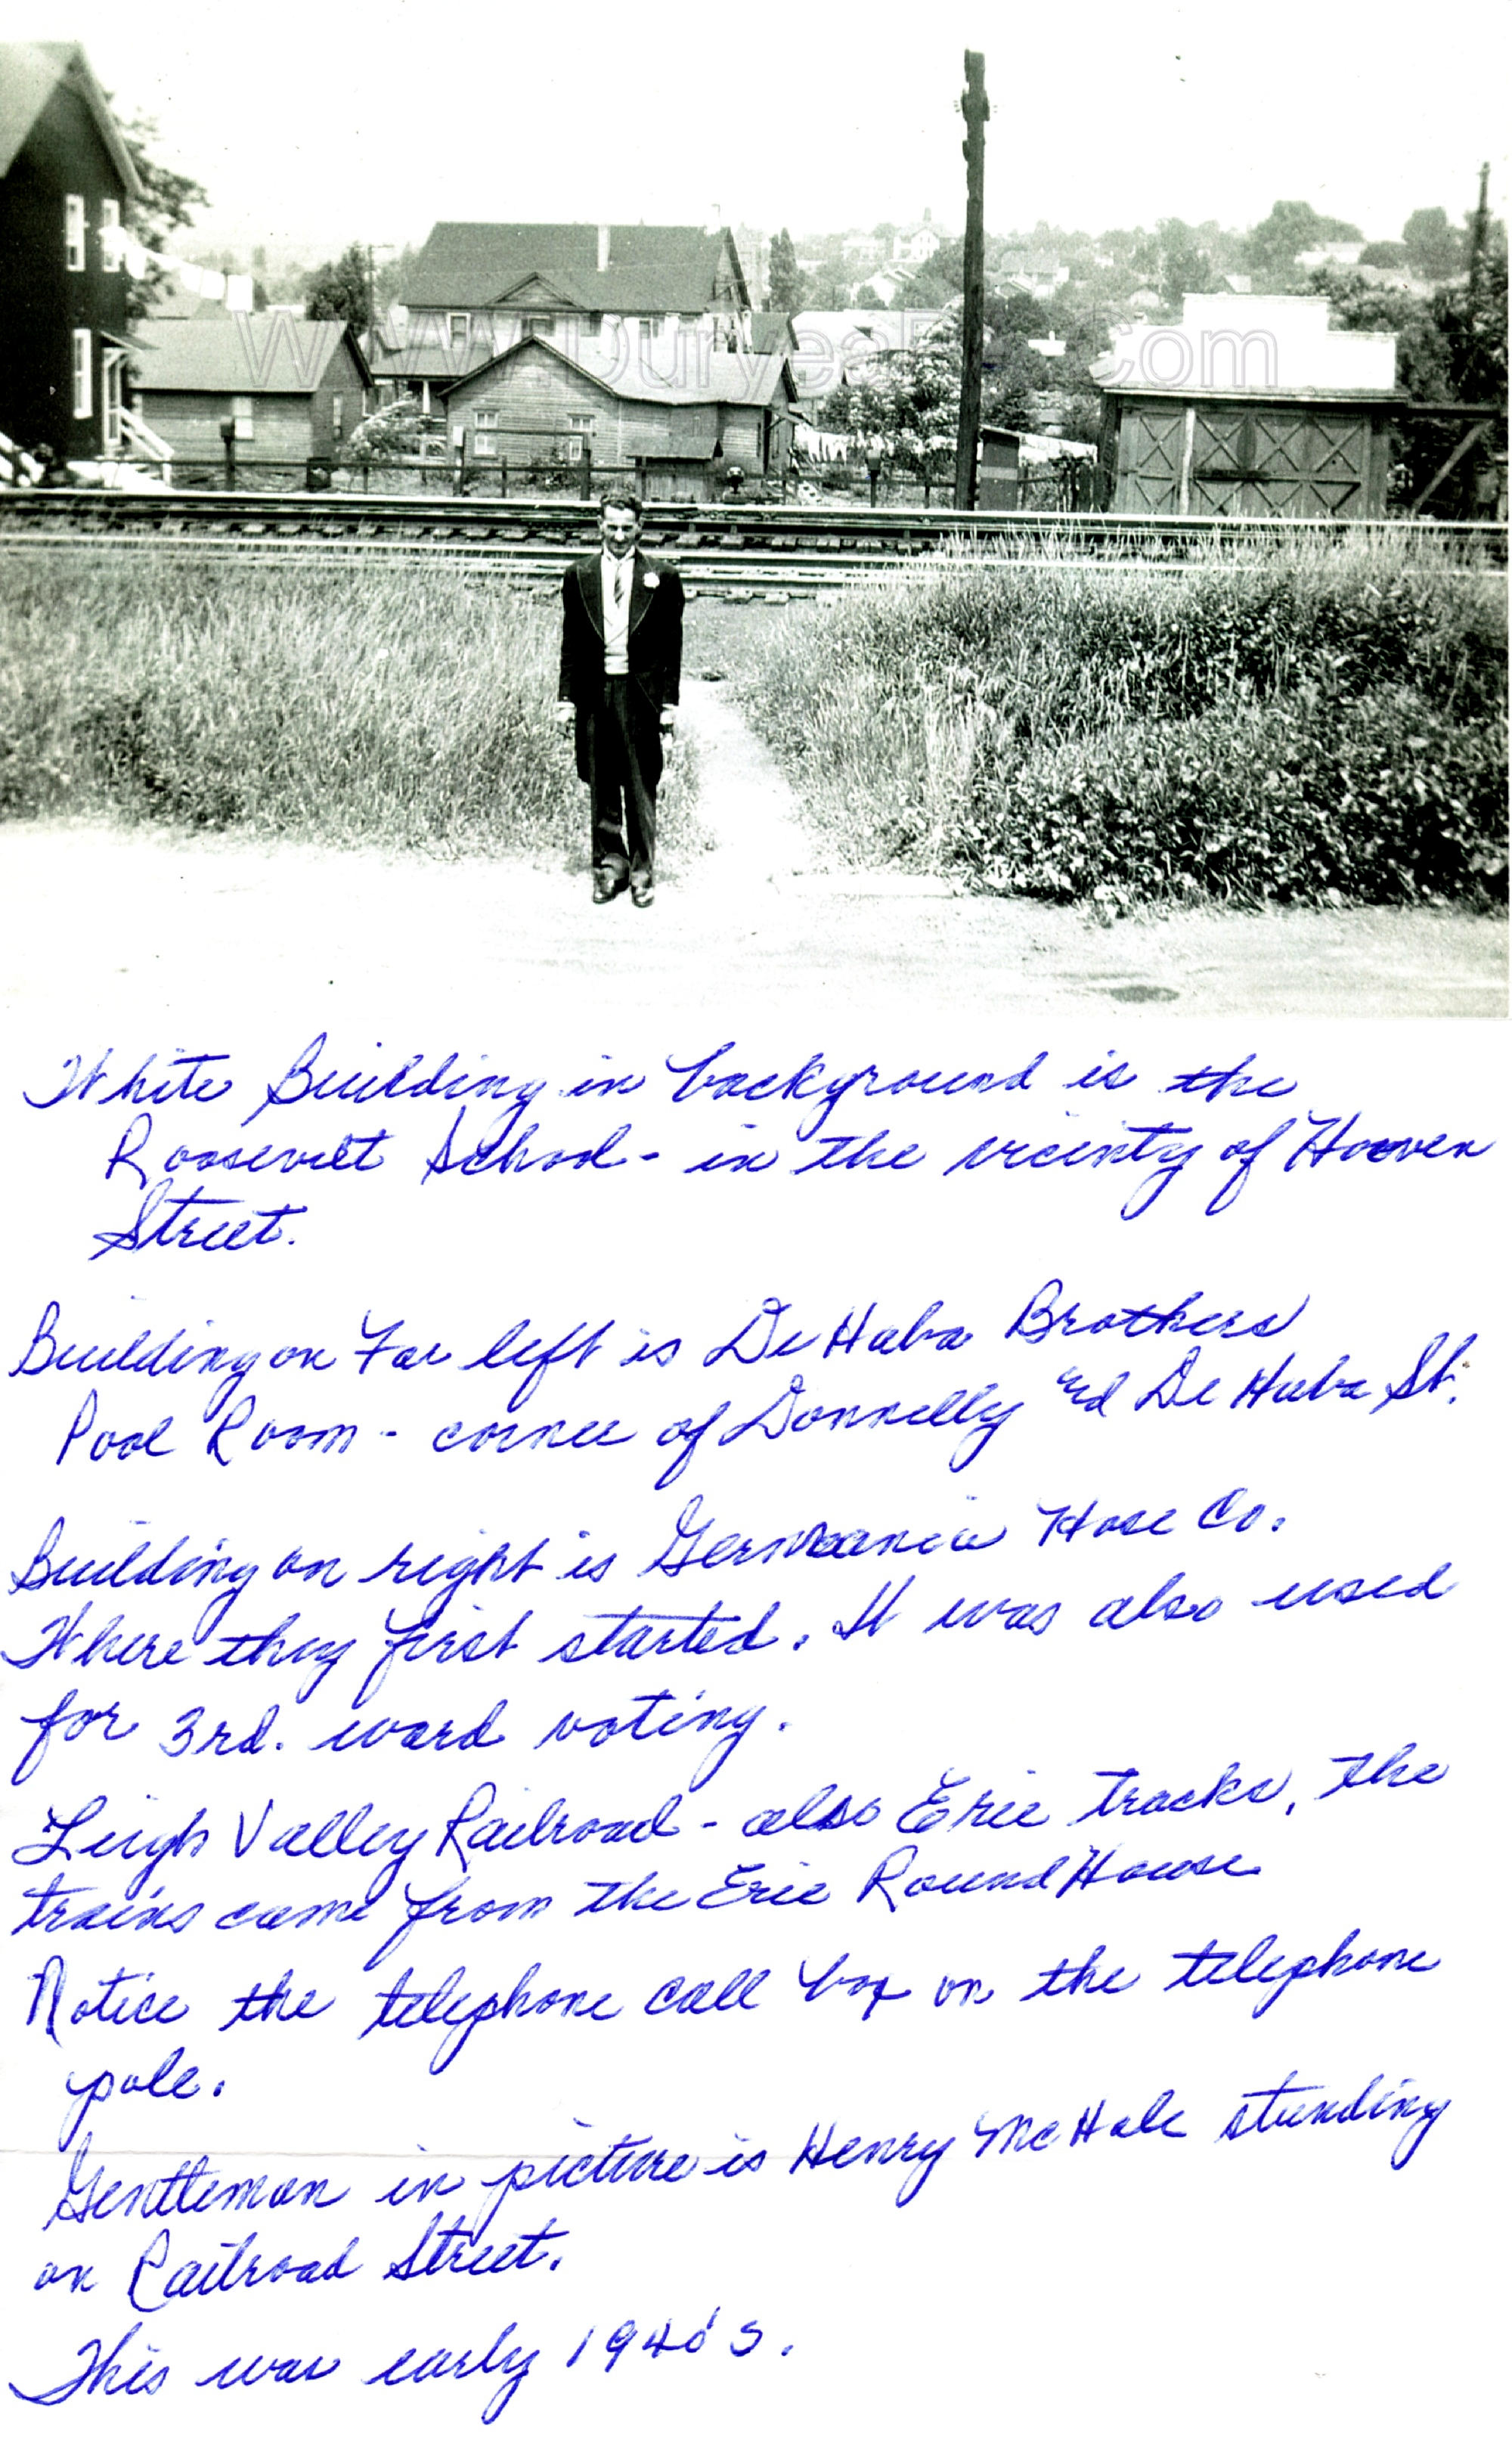 WWW.DuryeaPa.Com
White Building in background is the
Roosevelt School - in the vicinty of Hoover
Street.
Building on Far left is De Haba Brothers
Pool Room - corner of Donnelly nd De Haba St.
Building on right is Germania Hose Co.
Where they first started. It was also used
for 3rd. ward voting.
Leigh Valley Railroad - also Erie tracks, the
trains came from the Erie Round House
Notice the telephone call box on the telephone
pole.
Gentleman in picture is Henry McHale standing
on Railroad Street.
This was early 1940's.